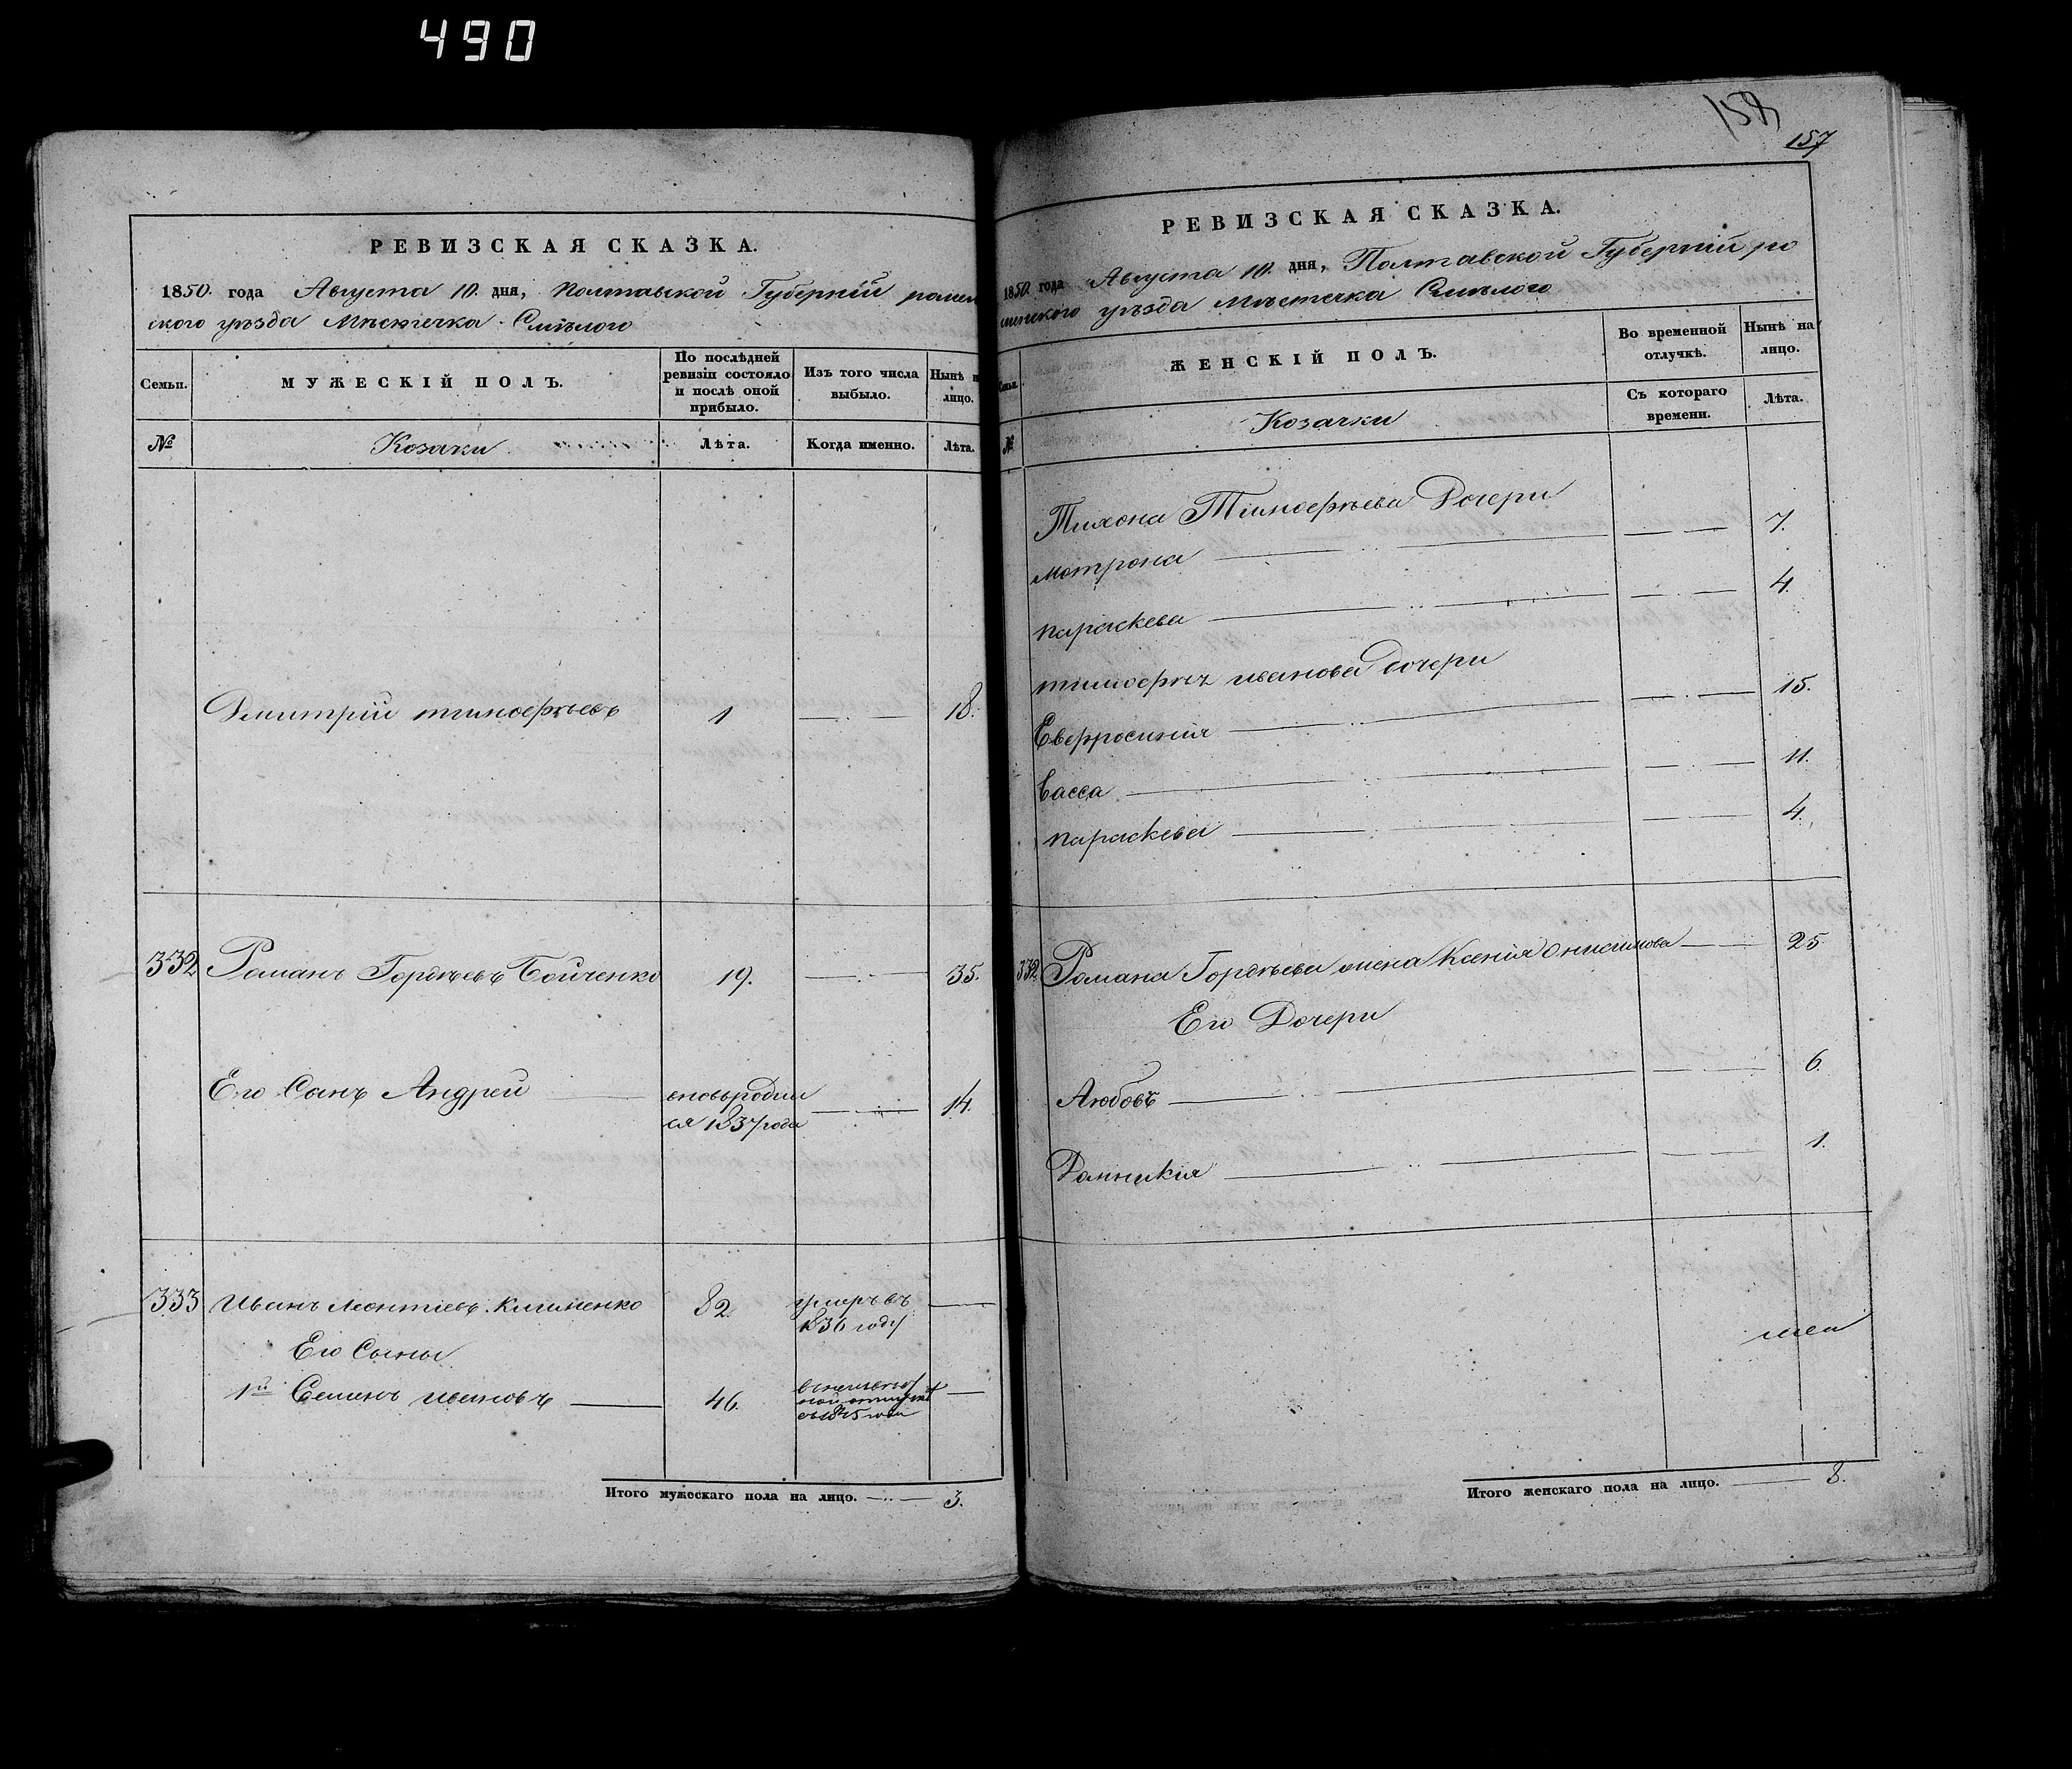 490
РЕВИЗСКАЯ СКАЗКА.
1850. года Августа 10. дня, Полтавской Губерніи ромен
ского уѣзда Мѣстечка Смѣлого
Семьи.
МУЖЕСКІЙ ПОЛЪ.
По послѣдней ревизіи состояло и послѣ оной прибыло.
Изъ того числа выбыло.
Нынѣ н лицо.
№
Козаки
Лѣта.
Когда именно.
Лѣта.
Дмитрій тимофѣевъ 1 18.
332 Романъ Гордѣевъ Бойченко 19. 35.
Его Сынъ Андрей вновьродил 14.
ся 1837 года
333 Иванъ Леонтіевъ Клименко 82. умеръ въ
1836 году
Его Сыны
1й Семенъ ивановъ 46.
1845 года
Итого мужескаго пола на лицо. 3.
158
157
РЕВИЗСКАЯ СКАЗКА.
1850. года Августа 10. дня, Полтавской Губерніи ро
менского уѣзда Мѣстечка Смѣлого
Семьи.
ЖЕНСКІЙ ПОЛЪ.
Во временной отлучкѣ.
Нынѣ на лицо.
Съ котораго времени.
Лѣта.
№
Козачки
Тихона Тимофѣева Дочери
мотрона 7.
параскева 4.
тимофѣя иванова Дочери
Евфросинія 15.
Васса 11.
параскева 4.
332. Романа Гордѣева жена Ксенія Онисимова 25
Его Дочери
Любовь 6.
Домникія 1.
Итого женскаго пола на лицо. 8.